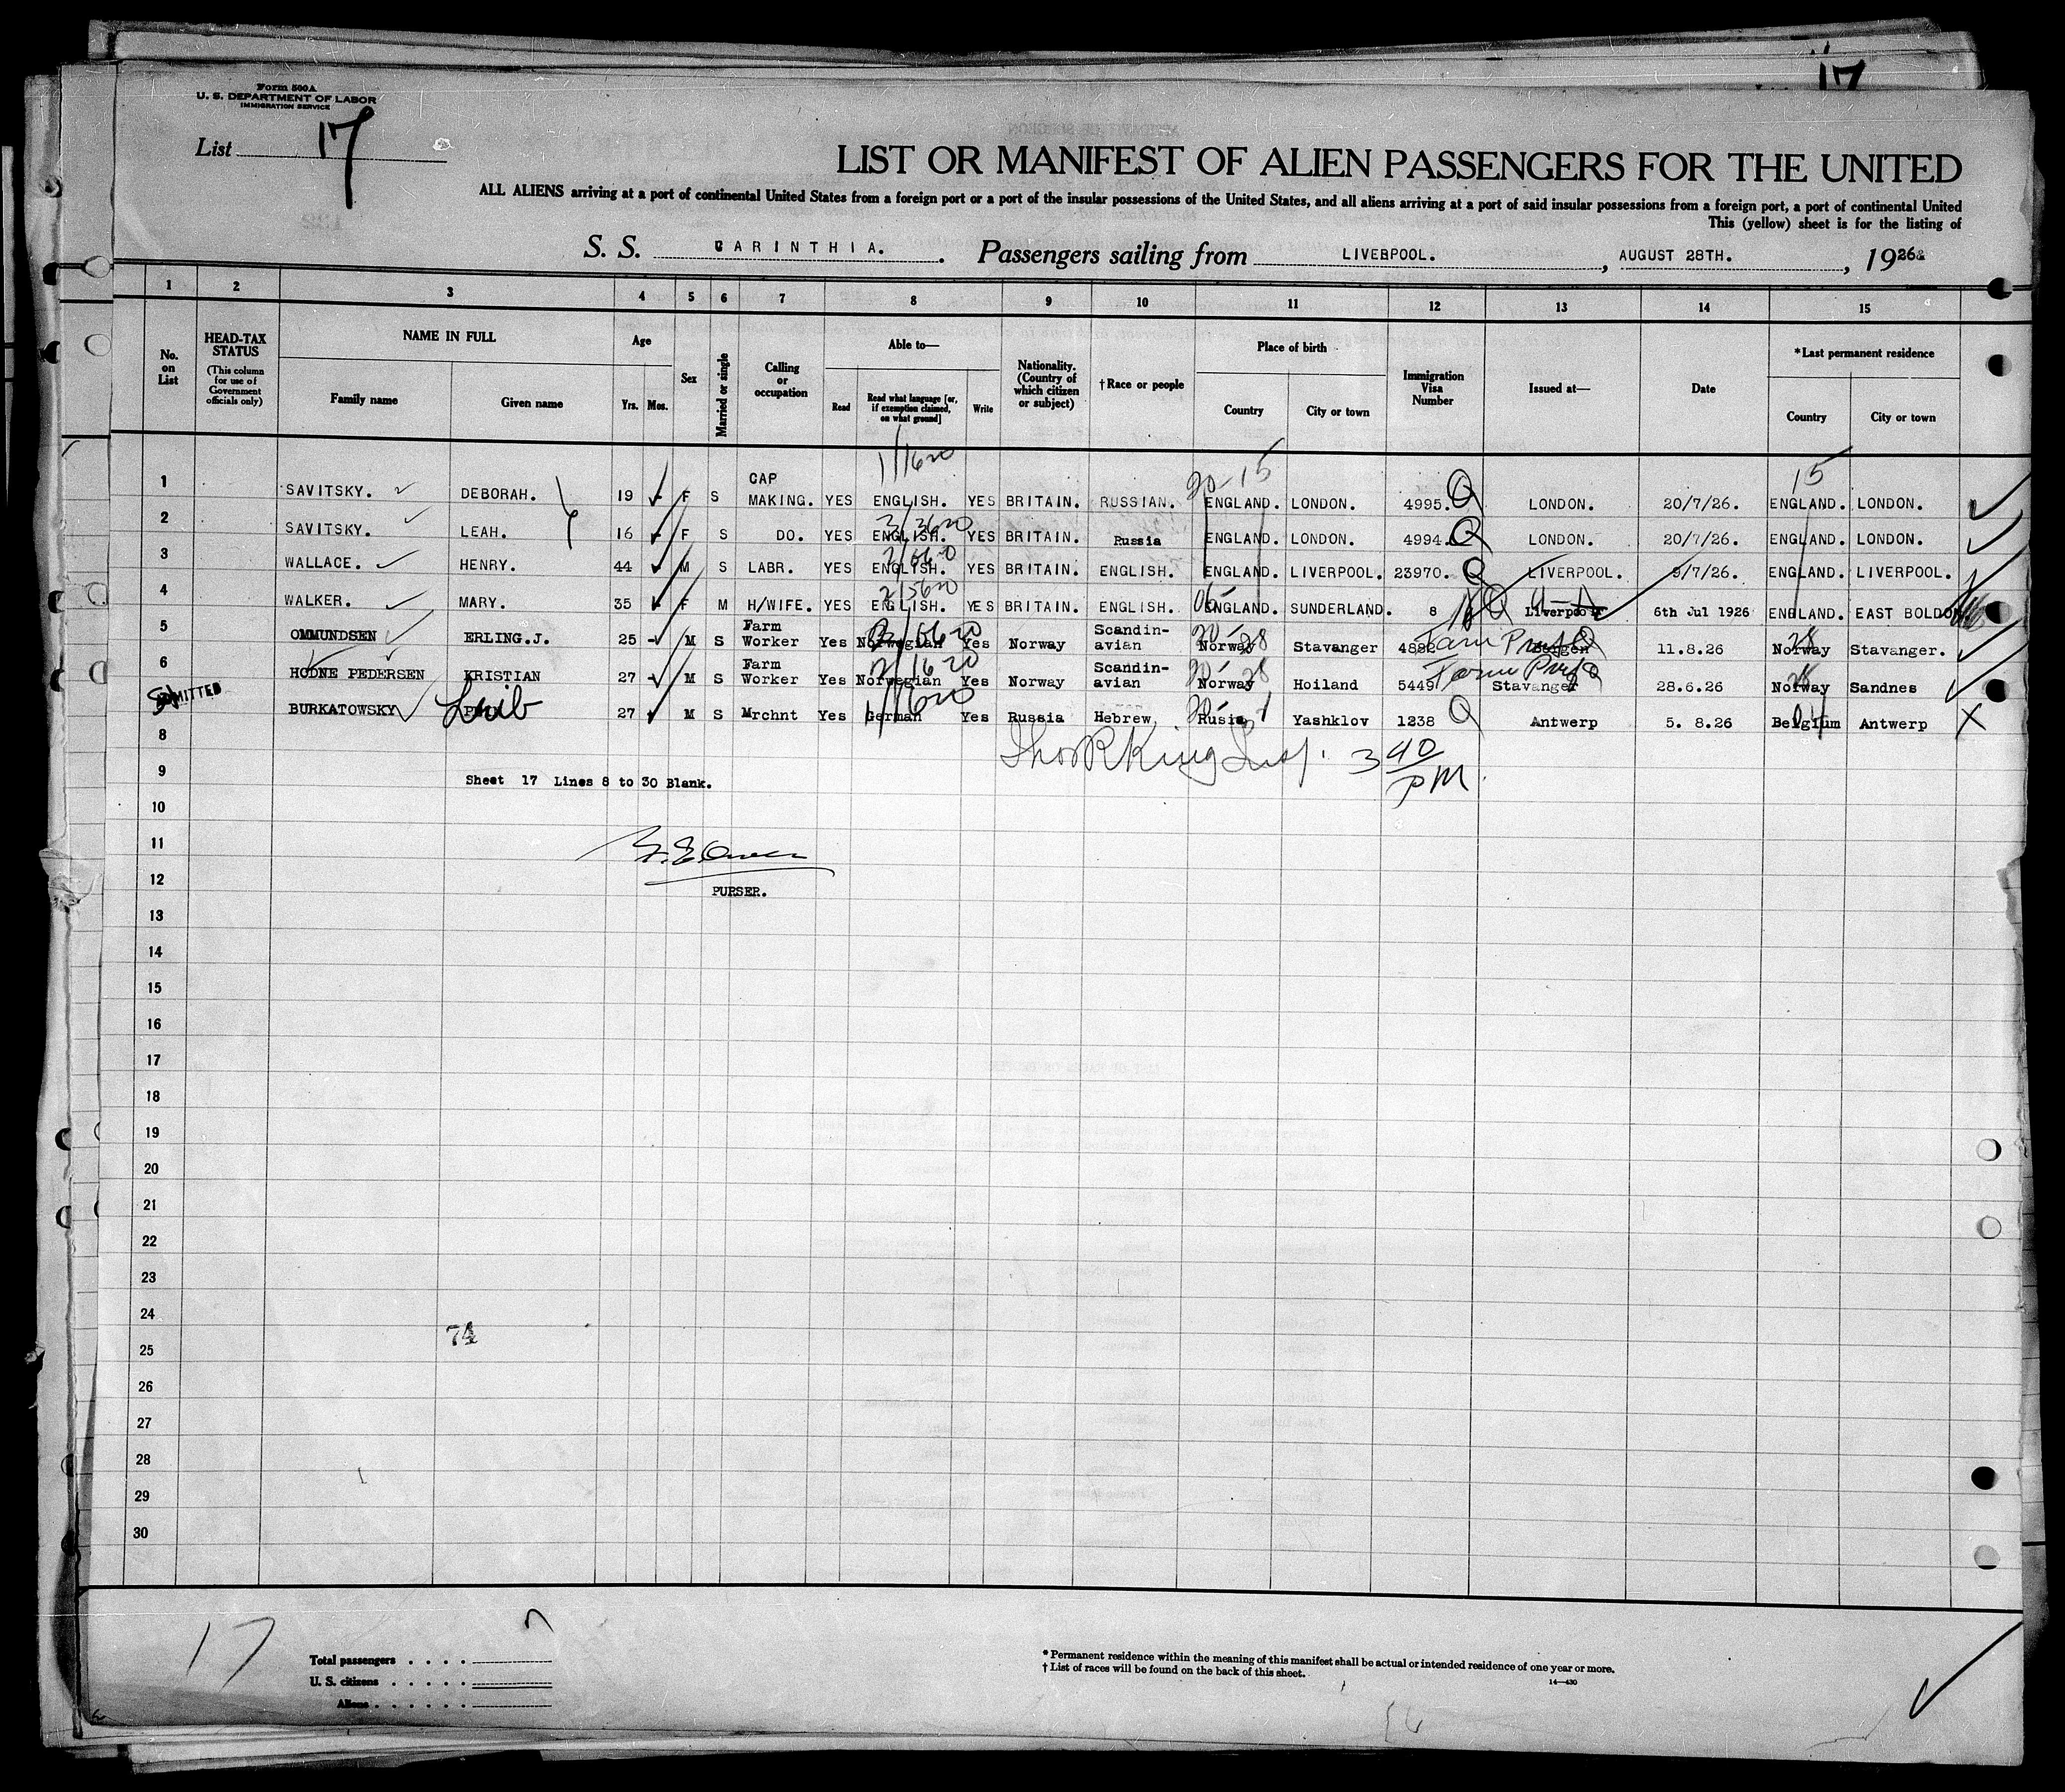 17
Form 500A
U. S. DEPARTMENT OF LABOR
IMMIGRATION SERVICE
List 17
LIST OR MANIFEST OF ALIEN PASSENGERS FOR THE UNITED
ALL ALIENS arriving at a port of continental United States from a foreign port or a port of the insular possessions of the United States, and all aliens arriving at a port of said insular possessions from a foreign port, a port of continental United
This (yellow) sheet is for the listing of
S. S. CARINTHIA. Passengers sailing from LIVERPOOL. , AUGUST 28TH. , 1926
1 2 3 4 5 6 7 8 9 10 11 12 13 14 15
No. on List
HEAD-TAX STATUS
(This column for use of Government officials only)
NAME IN FULL
Family name
Given name
Age
Yrs. Mos.
Sex
Married or single
Calling or occupation
Able to—
Read
Read what language [or, if exemption claimed, on what ground]
Write
Nationality. (Country of which citizen or subject)
†Race or people
Place of birth
Country
City or town
Immigration Visa Number
Issued at—
Date
*Last permanent residence
Country
City or town
1 SAVITSKY. DEBORAH. 19 F S CAP MAKING. YES ENGLISH. YES BRITAIN. RUSSIAN. ENGLAND. LONDON. 4995. LONDON. 20/7/26. ENGLAND. LONDON.
2 SAVITSKY. LEAH. 16 F S DO. YES ENGLISH. YES BRITAIN. Russia ENGLAND. LONDON. 4994. LONDON. 20/7/26. ENGLAND. LONDON.
3 WALLACE. HENRY. 44 M S LABR. YES ENGLISH. YES BRITAIN. ENGLISH. ENGLAND. LIVERPOOL. 23970. LIVERPOOL. 9/7/26. ENGLAND. LIVERPOOL.
4 WALKER. MARY. 35 F M H/WIFE. YES ENGLISH. YES BRITAIN. ENGLISH. ENGLAND. SUNDERLAND. 8 Liverpool 6th Jul 1926 ENGLAND. EAST BOLDON
5 OMMUNDSEN ERLING.J. 25 M S Farm Worker Yes Norwegian Yes Norway Scandin-avian Norway Stavanger Bergen 11.8.26 Norway Stavanger.
6 HODNE PEDERSEN KRISTIAN 27 M S Farm Worker Yes Norwegian Yes Norway Scandin-avian Norway Hoiland 5449 Stavanger 28.6.26 Norway Sandnes
ADMITTED BURKATOWSKY Leib 27 M S Mrchnt Yes German Yes Russia Hebrew Rusia Yashklov 1238 Antwerp 5. 8.26 Belgium Antwerp
8
Thos R King Insp. 3 40 PM
9
Sheet 17 Lines 8 to 30 Blank.
10
11
12
PURSER.
13
14
15
16
17
18
19
20
21
22
23
24
74
25
26
27
28
29
30
17
Total passengers
U. S. citizens
Aliens
* Permanent residence within the meaning of this manifest shall be actual or intended residence of one year or more.
† List of races will be found on the back of this sheet.
14—430